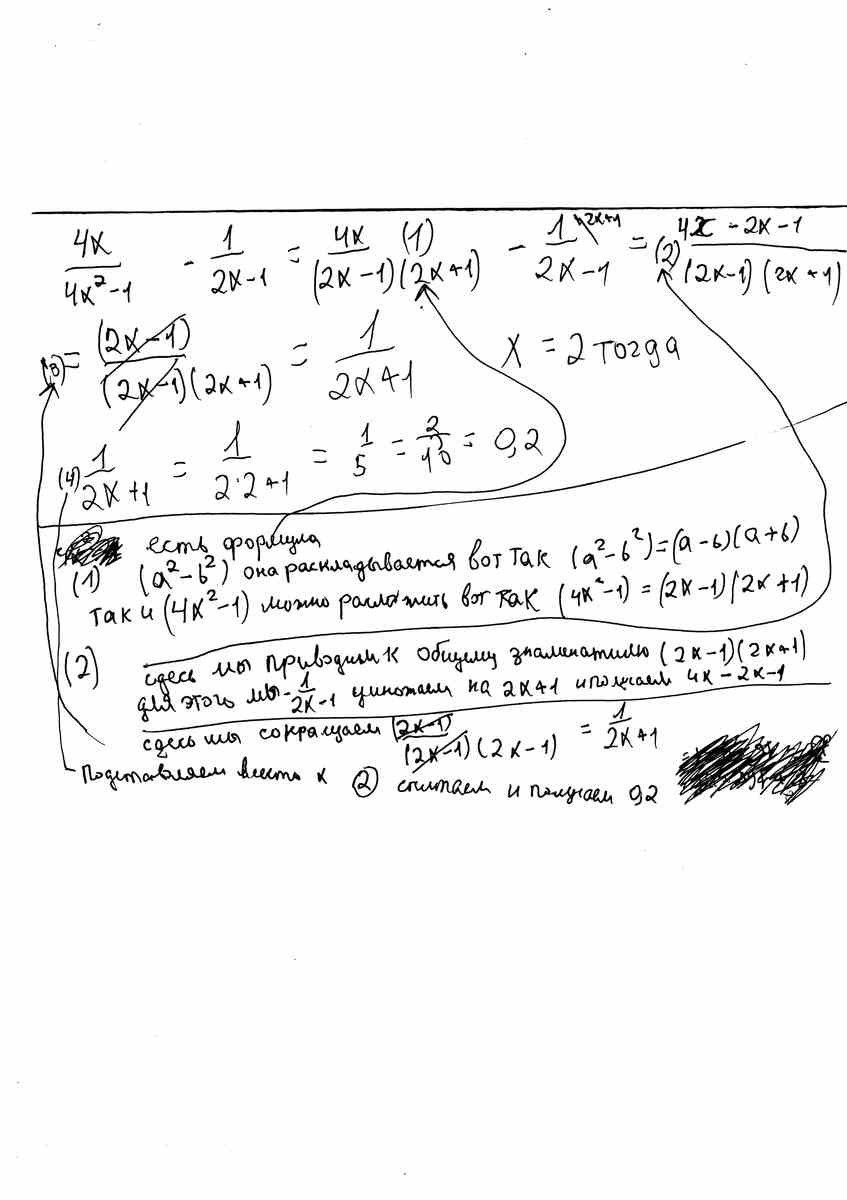 4x/(4x²-1) - 1/(2x-1) = 4x/((2x-1)(2x+1)) (1) - 1/(2x-1) \2x+1 = (2) (4x-2x-1)/((2x-1)(2x+1))
(3) = (2x-1)/((2x-1)(2x+1)) = 1/(2x+1) x = 2 тогда
(4) 1/(2x+1) = 1/(2·2+1) = 1/5 = 2/10 = 0,2
есть формула
(1) (a²-b²) она раскладывается вот так (a²-b²)=(a-b)(a+b)
так и (4x²-1) можно разложить вот так (4x²-1) = (2x-1)(2x+1)
(2) здесь мы приводим к общему знаменателю (2x-1)(2x+1)
для этого мы -1/(2x-1) умножаем на 2x+1 и получаем 4x-2x-1
здесь мы сокращаем (2x-1)/((2x-1)(2x-1)) = 1/(2x+1)
Подставляем вместо x 2 считаем и получаем 0,2